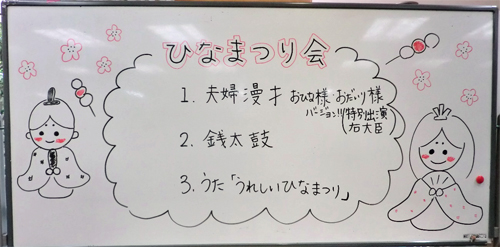 ひなまつり会
1. 夫婦漫才 おひな様 おだいり様
バージョン!! (特別出演
右大臣)
2. 銭太鼓
3. うた「うれしいひなまつり」